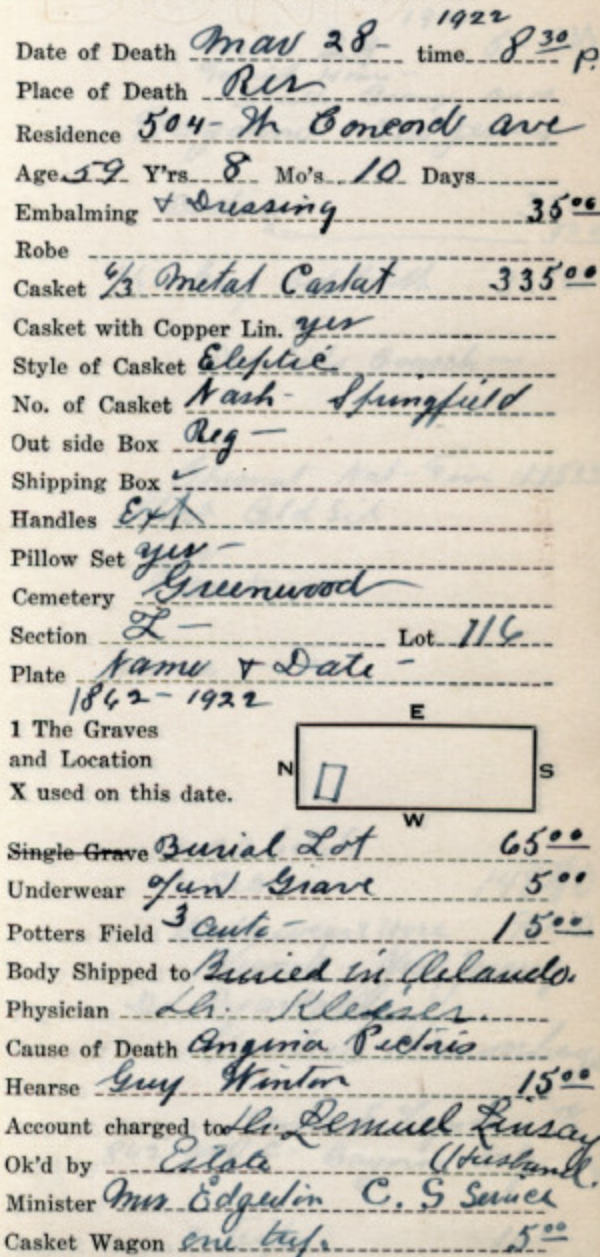 1922
Date of Death Mar 28- time 8 30 P.
Place of Death Res
Residence 504- W Concord ave
Age 59 Y'rs 8 Mo's 10 Days
Embalming & Dressing 35 00
Robe
Casket 6/3 Metal Casket 335 00
Casket with Copper Lin. yes
Style of Casket Eleptic
No. of Casket Nash- Springfield
Out side Box Reg -
Shipping Box ✓
Handles Ext
Pillow Set yes -
Cemetery Greenwood
Section Z - Lot 116
Plate Name & Date -
1862 - 1922
E
1 The Graves
and Location
X used on this date.
N S
W
Single Grave Burial Lot 65 00
Underwear Grave 5 00
Potters Field 3 auto - 15 00
Body Shipped to Buried in Orlando.
Physician Dr. Kleeser.
Cause of Death Angina Pectoris
Hearse Guy Winton 15 00
Account charged to Dr. Lemuel Linsay
Ok'd by Estate (Husband.
Minister Mrs Edgerton C. S Service
Casket Wagon one trip. 5 00